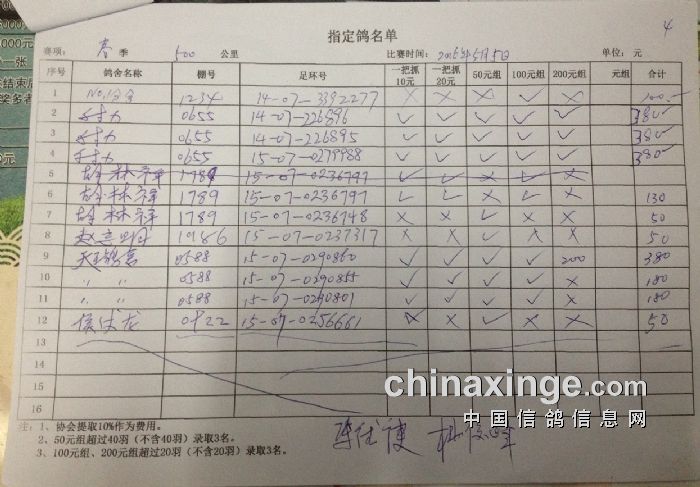 4
指定鸽名单
赛项: 春 季 500 公里 比赛时间: 单位: 元
序号 鸽舍名称 棚号 足环号 一把抓10元 一把抓20元 50元组 100元组 200元组 元组 合计
1 1234 14-07-3392277 × × × ✓ × 100
2 0655 14-07-226896 ✓ ✓ ✓ ✓ ✓ 380
3 0655 14-07-226895 ✓ ✓ ✓ ✓ ✓ 380
4 0655 15-07-0279988 ✓ ✓ ✓ ✓ ✓ 380
5 胡林祥 1789 15-07-0236797
6 胡林祥 1789 15-07-0236797 ✓ ✓ × ✓ × 130
7 胡林祥 1789 15-07-0236748 × × ✓ × × 50
8 1986 15-07-0237317 × × ✓ × × 50
9 0588 15-07-0290860 ✓ ✓ ✓ ✓ 200 380
10 〃 〃 0588 15-07-0290855 ✓ ✓ ✓ ✓ × 180
11 〃 〃 0588 15-07-0290801 ✓ ✓ ✓ ✓ × 180
12 0822 15-07-0256661 × × ✓ × × 50
13
14
15
16
chinaxinge.com
中国信鸽信息网
注: 1、协会提取10%作为费用。
2、50元组超过40羽(不含40羽)录取3名。
3、100元组、200元组超过20羽(不含20羽)录取3名。